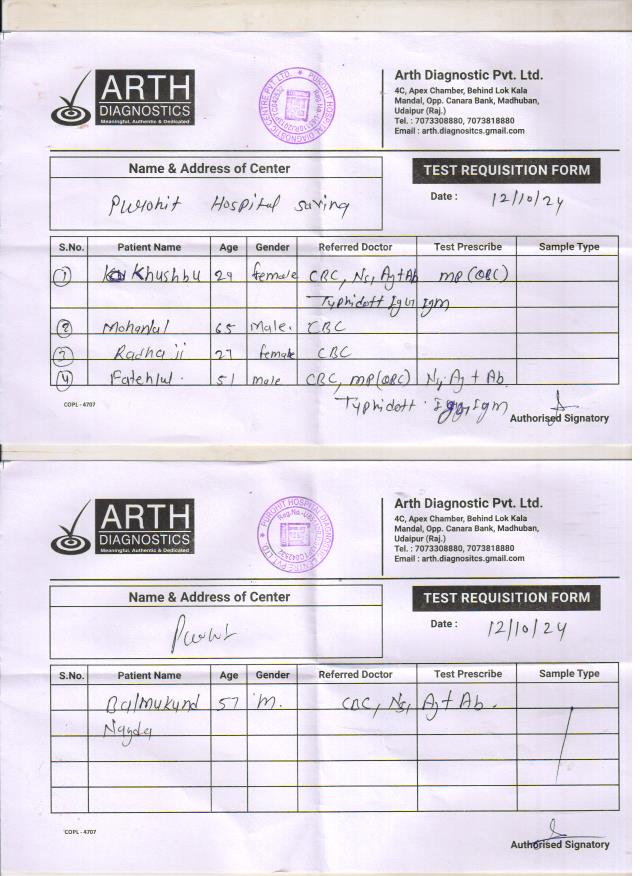 ARTH
DIAGNOSTICS
Meaningful, Authentic & Dedicated
PUROHIT HOSPITAL DIAGNOSTIC CENTRE PVT. LTD.
Arth Diagnostic Pvt. Ltd.
4C, Apex Chamber, Behind Lok Kala
Mandal, Opp. Canara Bank, Madhuban,
Udaipur (Raj.)
Tel. : 7073308880, 7073818880
Email : arth.diagnositcs.gmail.com
Name & Address of Center
TEST REQUISITION FORM
Purohit Hospital saving
Date : 12/10/24
S.No. Patient Name Age Gender Referred Doctor Test Prescribe Sample Type
1 Khushbu 29 female CBC, Ns, Ag+Ab MP (QBC)
Typhidott IgG IgM
2 Mohanlal 65 Male. CBC
3 Radha ji 27 female CBC
4 Fatehlal. 51 male CBC, MP(QBC) Ns. Ag + Ab.
Typhidott. IgG, IgM
COPL - 4707
Authorised Signatory
ARTH
DIAGNOSTICS
Meaningful, Authentic & Dedicated
PUROHIT HOSPITAL DIAGNOSTIC CENTRE PVT. LTD.
Arth Diagnostic Pvt. Ltd.
4C, Apex Chamber, Behind Lok Kala
Mandal, Opp. Canara Bank, Madhuban,
Udaipur (Raj.)
Tel. : 7073308880, 7073818880
Email : arth.diagnositcs.gmail.com
Name & Address of Center
TEST REQUISITION FORM
Date : 12/10/24
S.No. Patient Name Age Gender Referred Doctor Test Prescribe Sample Type
Balmukund 57 M. CBC, Ns, Ag + Ab.
Nagda
COPL - 4707
Authorised Signatory